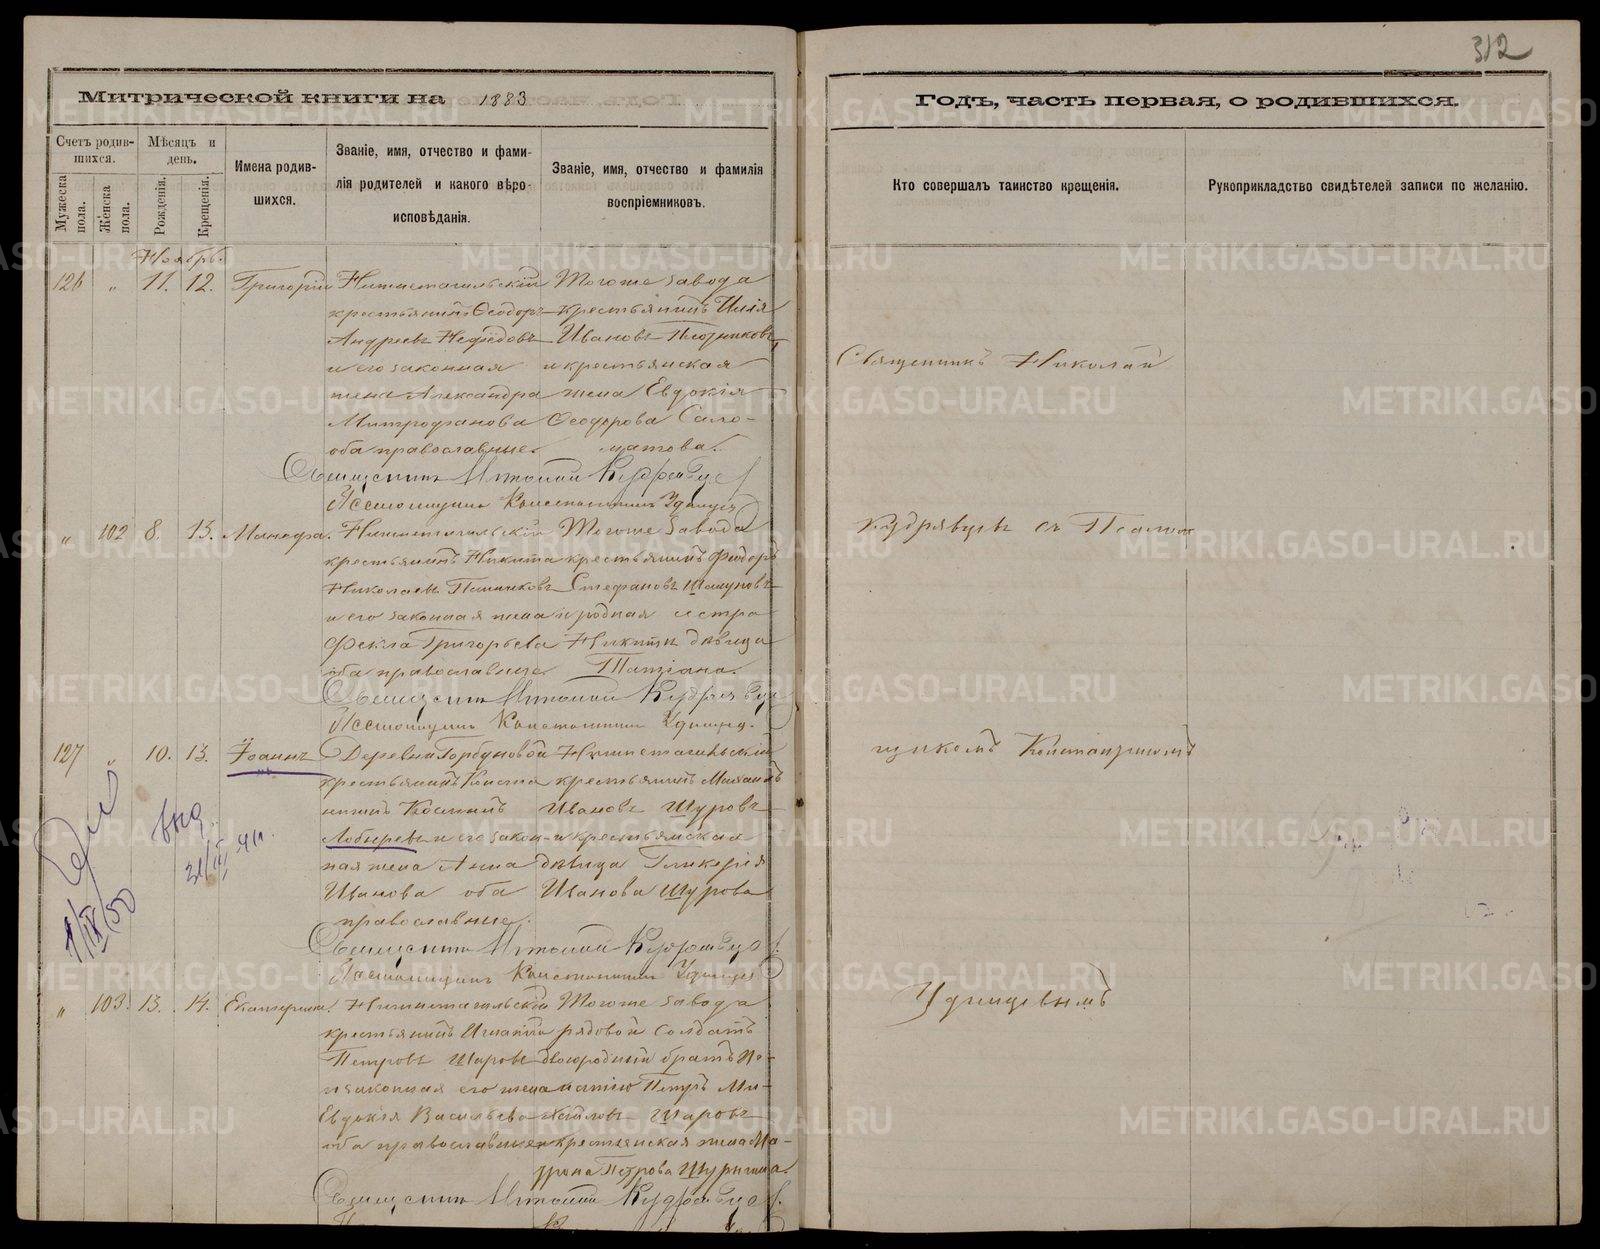 312
Митрической книги на 1883
Годъ, часть первая, о родившихся.
Счетъ родив-
шихся.
Мужеска
пола.
Женска
пола.
Мѣсяцъ и
день.
Рожденія.
Крещенія.
Имена родив-
шихся.
Званіе, имя, отчество и фами-
лія родителей и какого вѣро-
исповѣданія.
Званіе, имя, отчество и фамилія
воспріемниковъ.
Кто совершалъ таинство крещенія.
Рукоприкладство свидѣтелей записи по желанію.
Ноябрь.
126 " 11. 12. Григорій
Нижнетагильскій
крестьянинъ Ѳеодоръ
Андреевъ Нефедовъ
и его законная
жена Александра
Митрофанова
оба православные.
Тогоже завода
крестьянинъ Илія
Ивановъ Плотниковъ
и крестьянская
жена Евдокія
Ѳеодорова Сало-
матова.
Священникъ Николай Кудрявцевъ
Псаломщикъ Константинъ Удинцевъ
" 102 8. 13. Манефа.
Нижнетагильскій
крестьянинъ Никита
Николаевъ
и его законная жена
Фекла Григорьева
оба православные
Тогоже завода
крестьянинъ Федоръ
Стефановъ
и родная сестра
Никиты дѣвица
Татіана.
Священникъ Николай Кудрявцевъ
Псаломщикъ Константинъ Удинцевъ.
127 " 10. 13. Іоаннъ
Деревни Горбуновой
крестьянинъ Конста
нтинъ Косминъ
Лобыревъ и его закон-
ная жена Анна
Иванова оба
православные.
Нижнетагильскій
крестьянинъ Михаилъ
Ивановъ Щуровъ
и крестьянская
дѣвица Гликерія
Иванова Щурова
Священникъ Николай Кудрявцевъ
Псаломщикъ Константинъ Удинцевъ
" 103. 13. 14. Екатерина.
Нижнетагильскій
крестьянинъ Игнатій
Петровъ Шаровъ
и законная его жена
Евдокія Васильева
оба православные
Тогоже завода
рядовой солдатъ
двоюродный братъ Иг-
натію Петръ Ми-
хайловъ Шаровъ
и крестьянская жена Ма-
трона Петрова
Священникъ Николай Кудрявцевъ
Священникъ Николай
Кудрявцевъ съ Псалом
щикомъ Константиномъ
Удинцевымъ
METRIKI.GASO-URAL.RU